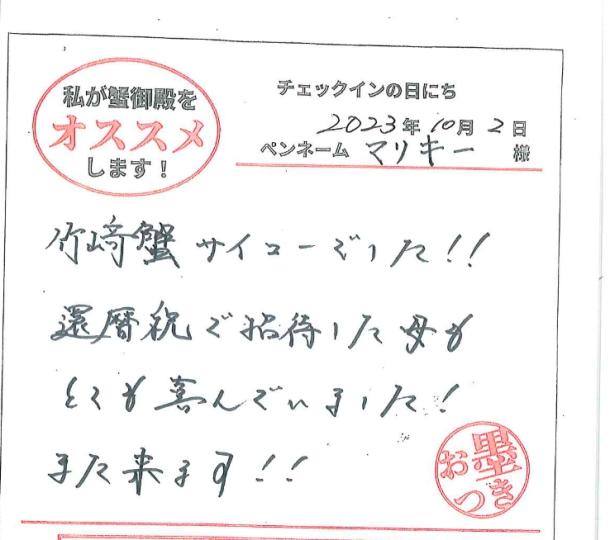 私が蟹御殿を
オススメ
します！
チェックインの日にち
2023年10月2日
ペンネーム マリキー 様
竹崎蟹サイコーでした!!
還暦祝で招待した母も
とても喜んでいました!
また来ます!!
お墨
つき